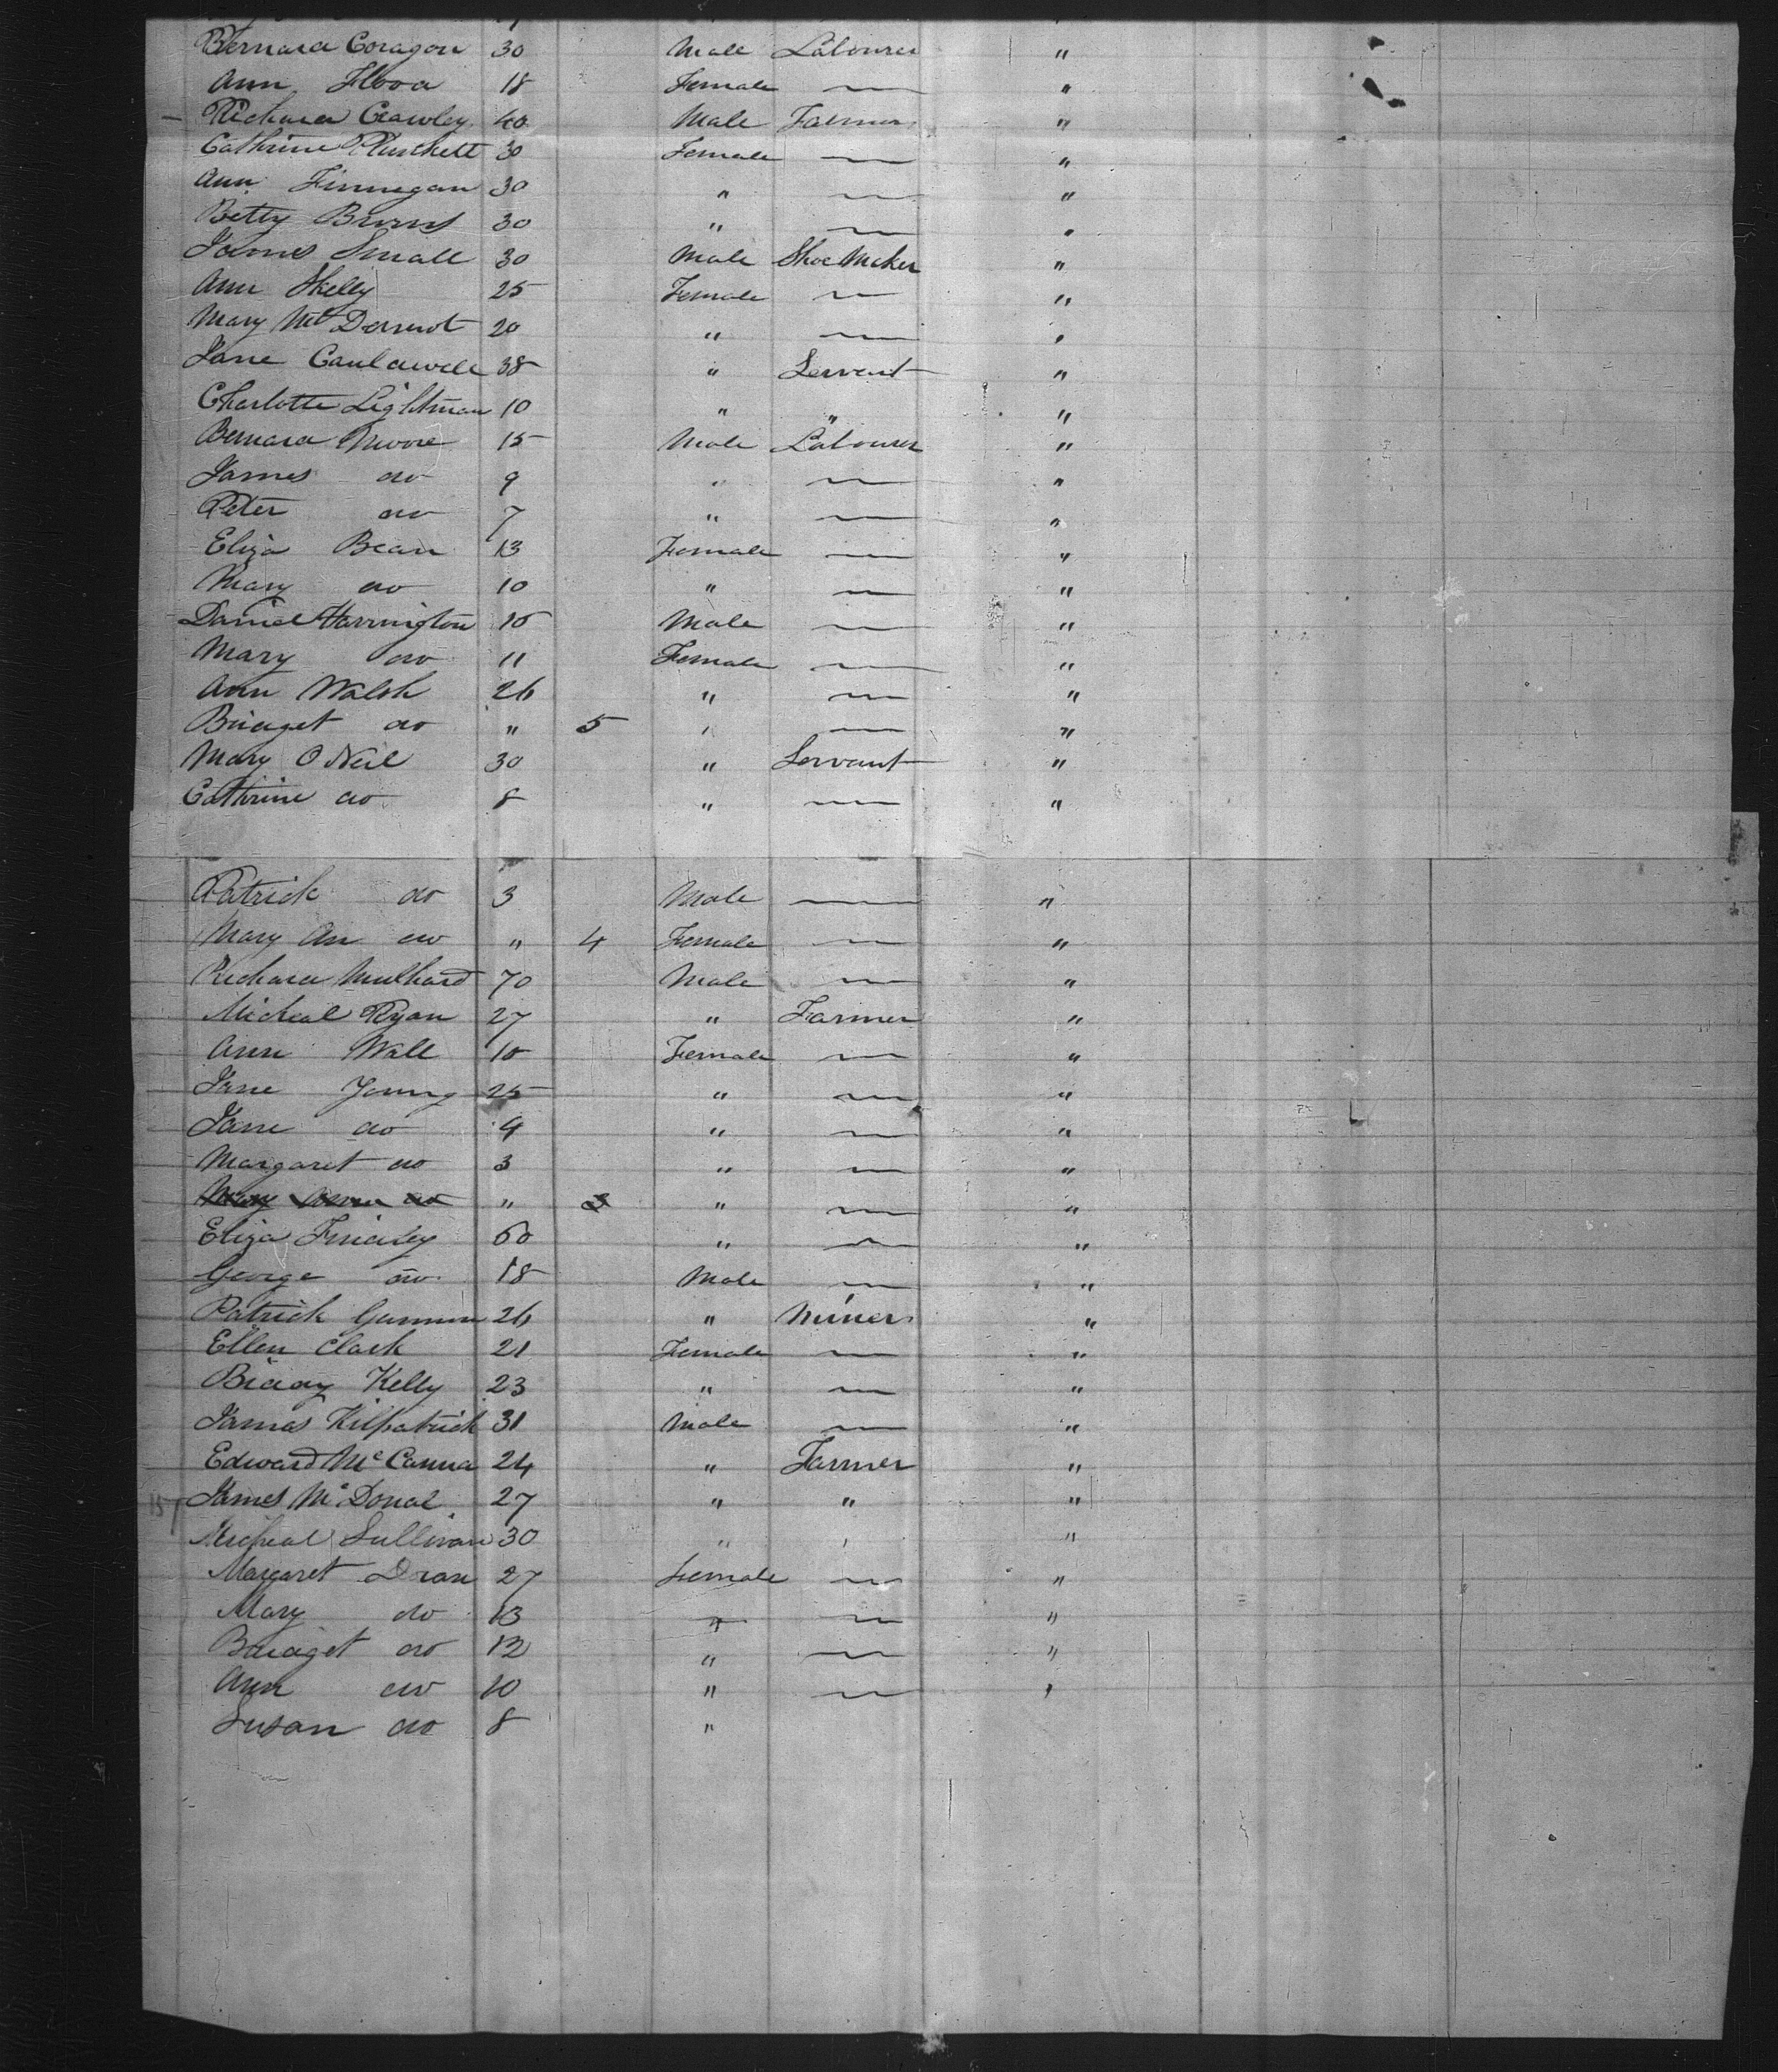 Bernard Coragon 30 Male Labourer "
Ann Flood 18 Female — "
Richard Crawley 40 Male Farmer "
Cathrine Plunkett 30 Female — "
Ann Finnegan 30 " — "
Betty Burns 30 " — "
James Small 30 Male Shoe Maker "
Ann Skelly 25 Female — "
Mary McDermot 20 " — "
Jane Cauldwell 38 " Servant "
Charlotte Lightman 10 " " "
Bernard Moore 15 Male Labourer "
James do 9 " — "
Peter do 7 " — "
Eliza Bean 13 Female — "
Mary do 10 " — "
Daniel Harrington 15 Male — "
Mary do 11 Female — "
Ann Walsh 26 " — "
Bridget do " 5 " — "
Mary O Neil 30 " Servant "
Cathrine do 8 " — "
Patrick do 3 Male — "
Mary An do " 4 Female — "
Richard Mulhard 70 Male — "
Micheal Ryan 27 " Farmer "
Ann Wall 10 Female — "
Jane Young 25 " — "
Jane do 9 " — "
Margaret do 3 " — "
Mary Ann do " 3 " — "
Eliza Findley 60 " — "
George do 18 Male — "
Patrick 26 " Miner "
Ellen Clark 21 Female — "
Biddy Kelly 23 " — "
James Kilpatrick 31 Male — "
Edward McCanna 24 " Farmer "
157 James McDonal 27 " " "
Micheal Sullivan 30 " " "
Margaret Doran 27 Female — "
Mary do 13 " — "
Bridget do 12 " — "
Ann do 10 " — "
Susan do 8 "